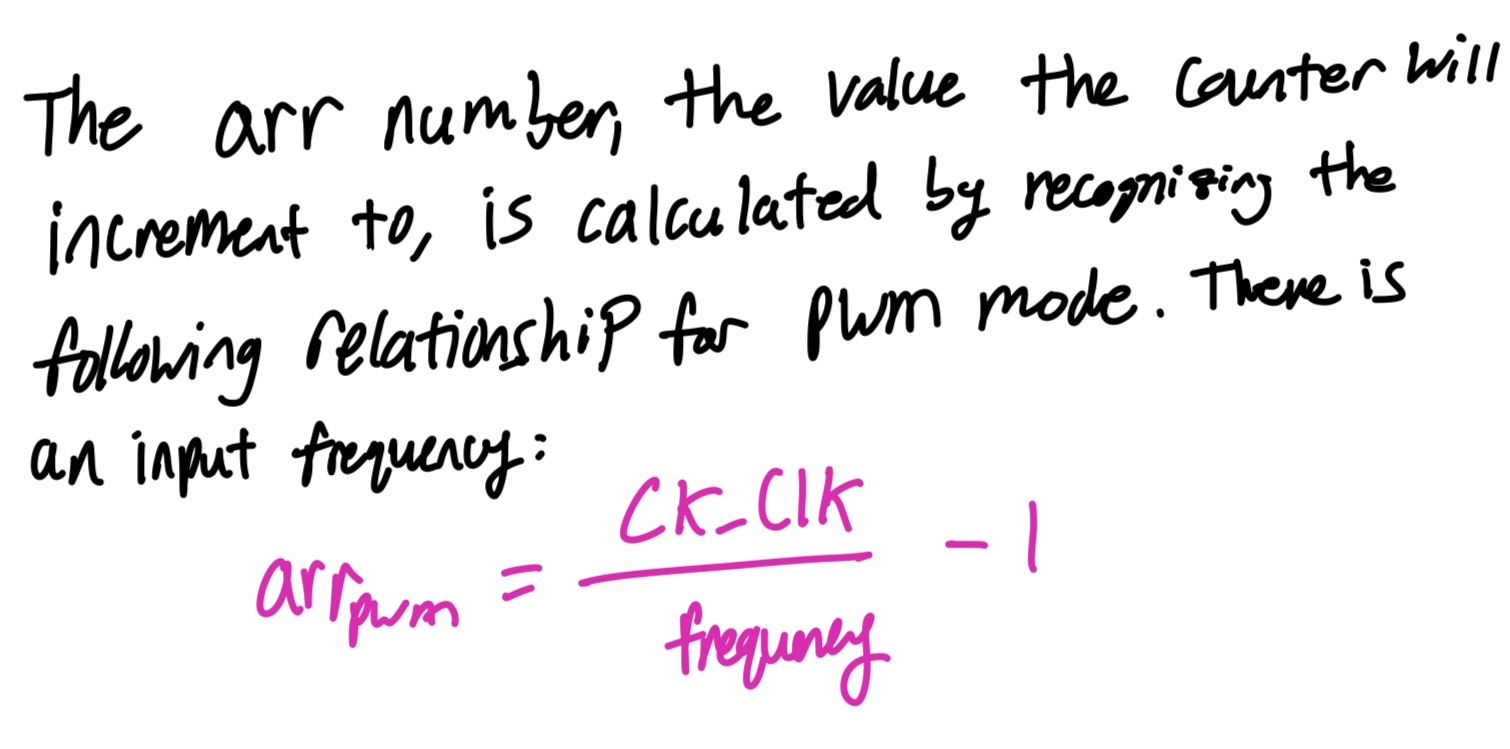 The arr number, the value the counter will
increment to, is calculated by recognizing the
following relationship for pwm mode. There is
an input frequency:
arr_pwm = CK_Clk / frequney - 1